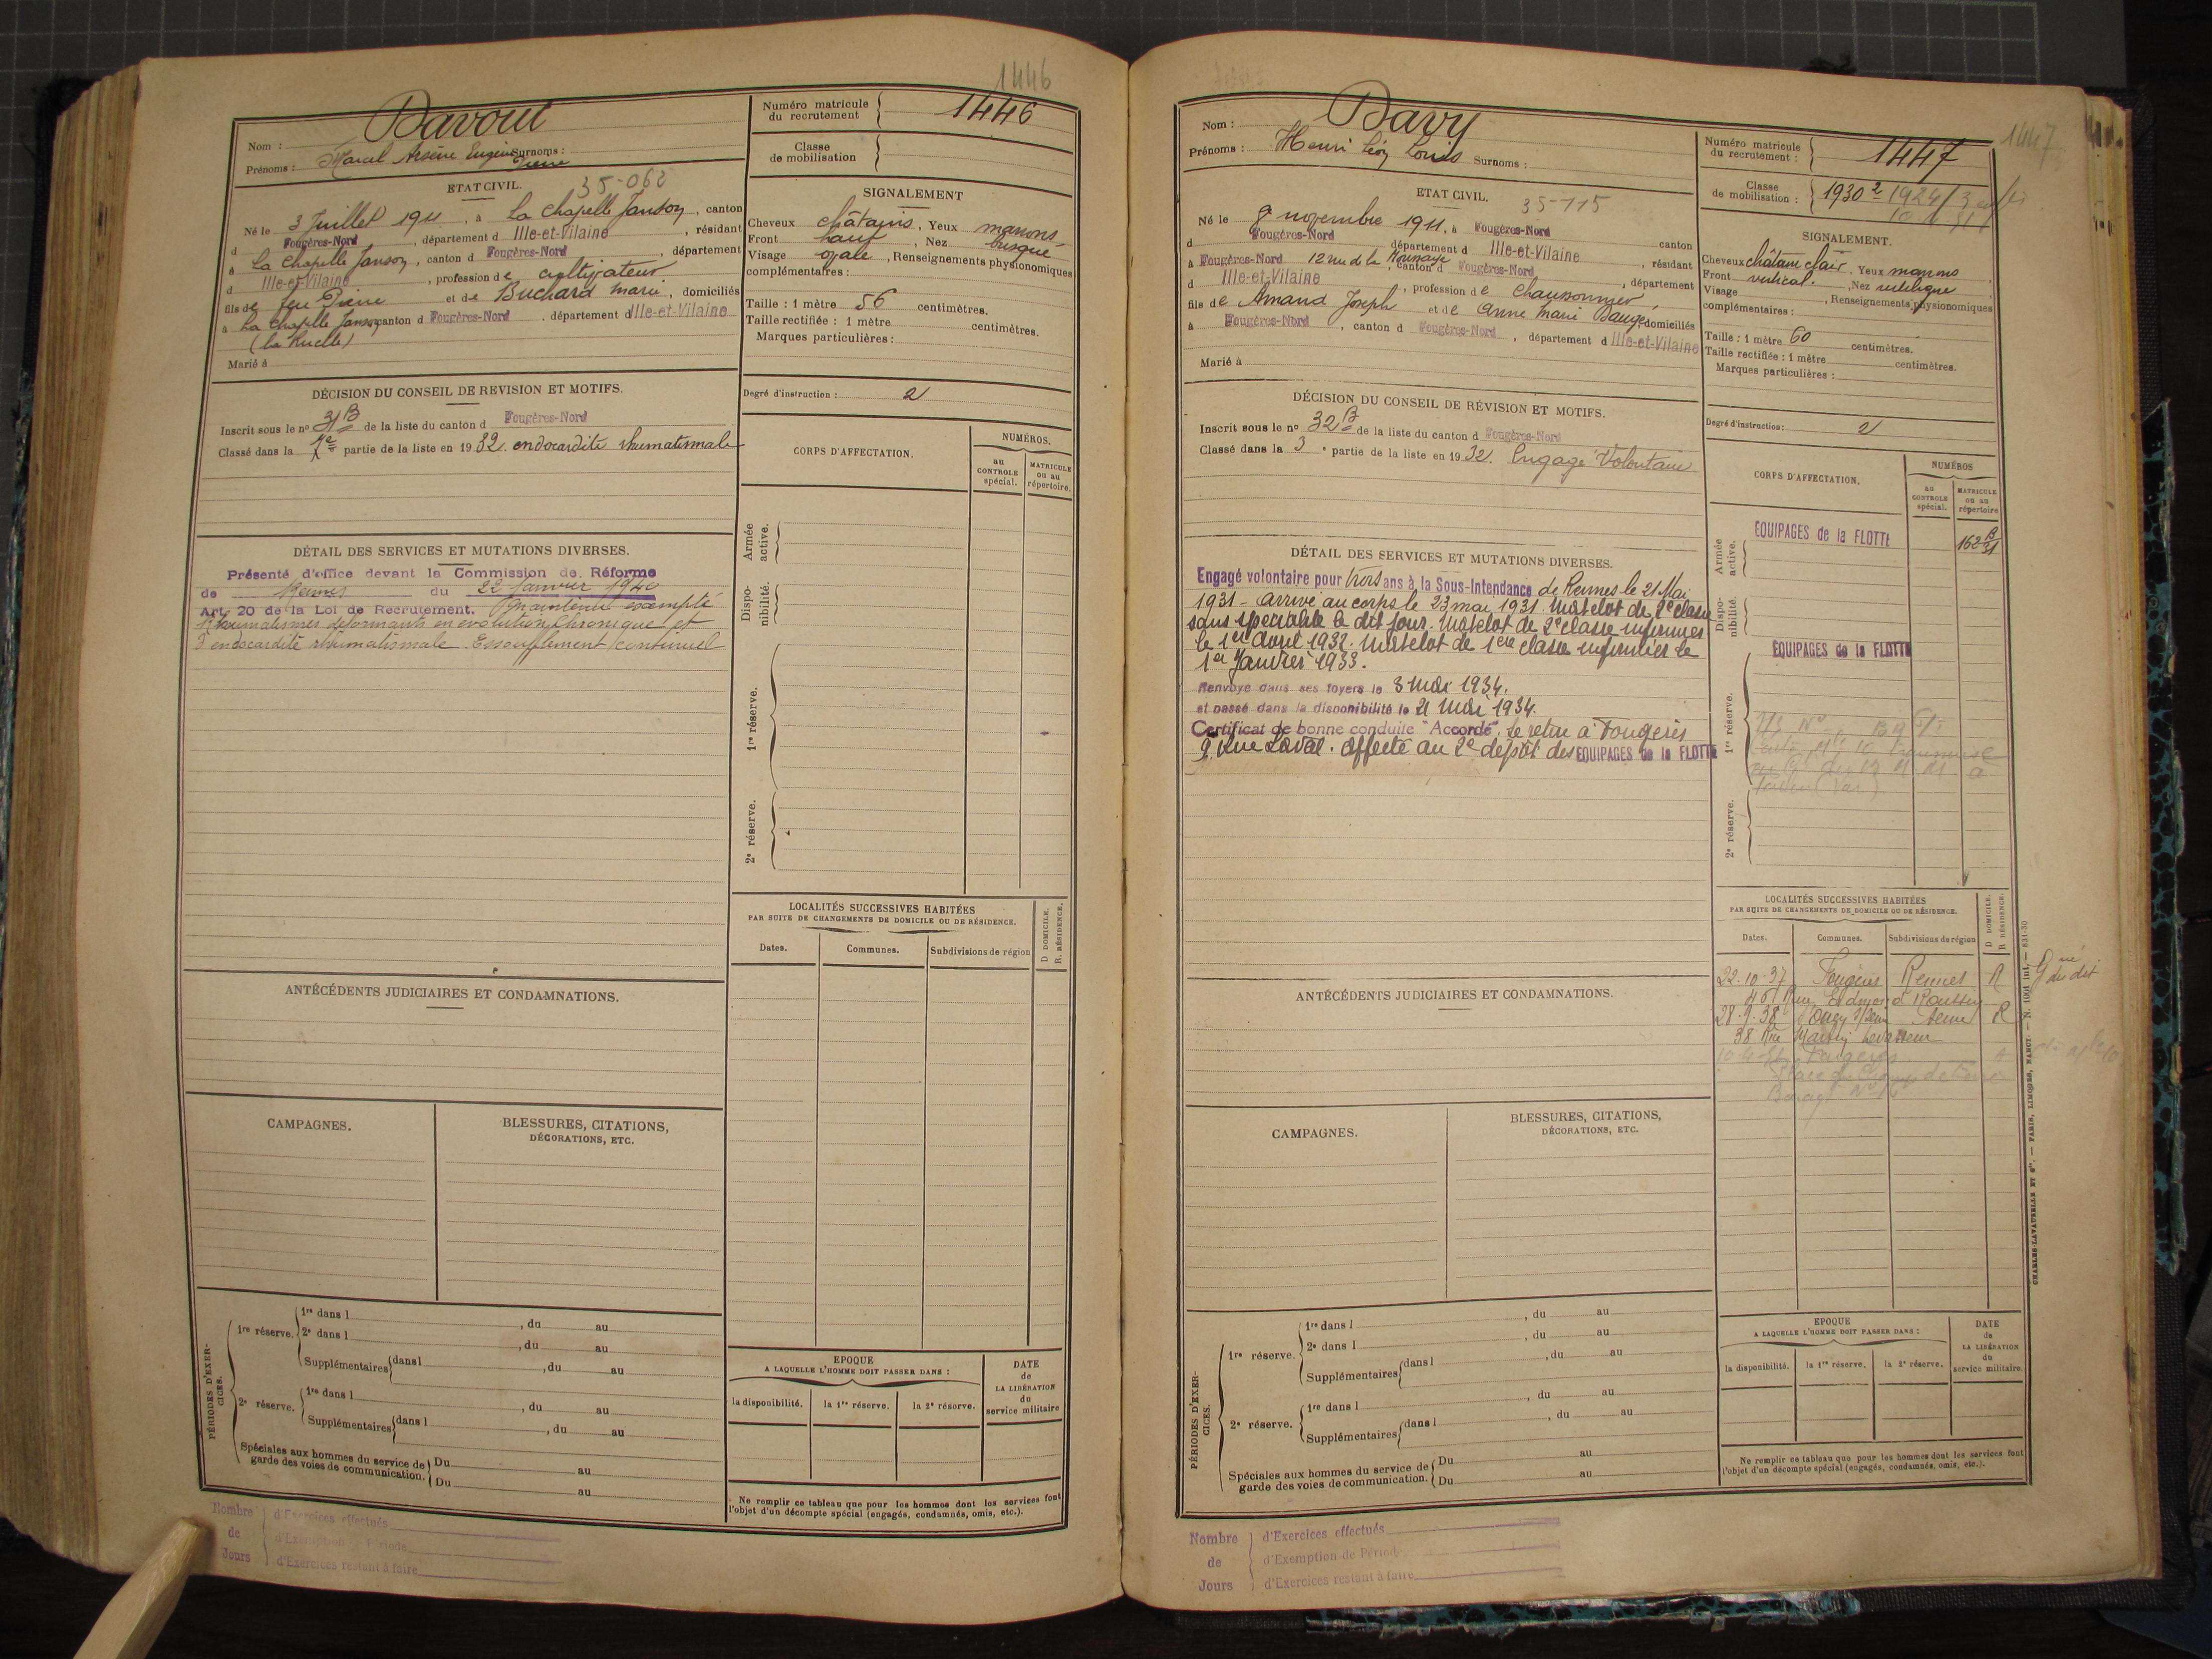 1446
Nom : Davout
Prénoms : Marcel Arsène Eugène Surnoms :
Pierre
Numéro matricule du recrutement 1446
Classe de mobilisation
ETAT CIVIL. 35-062
Né le 3 Juillet 1911, à La Chapelle Janson, canton
d Fougères-Nord, département d Ille-et-Vilaine, résidant
à La Chapelle Janson, canton d Fougères-Nord, département
d Ille-et-Vilaine, profession de cultivateur
fils de feu Pierre et de Buchard Marie, domiciliés
à La Chapelle Janson canton d Fougères-Nord, département d Ille-et-Vilaine
(la Ruelle)
Marié à
SIGNALEMENT
Cheveux châtains, Yeux marrons
Front haut, Nez busqué
Visage ovale, Renseignements physionomiques
complémentaires :
Taille : 1 mètre 56 centimètres.
Taille rectifiée : 1 mètre centimètres.
Marques particulières :
DÉCISION DU CONSEIL DE REVISION ET MOTIFS.
Inscrit sous le nº 31 B de la liste du canton d Fougères-Nord
Classé dans la partie de la liste en 1932. endocardite rhumatismale
Degré d'instruction : 2
CORPS D'AFFECTATION.
NUMÉROS.
au CONTROLE spécial.
MATRICULE ou au répertoire.
Armée active.
Disponibilité.
1re réserve.
2e réserve.
DÉTAIL DES SERVICES ET MUTATIONS DIVERSES.
Présenté d'office devant la Commission de Réforme
de Rennes du 22 Janvier 1940
Art. 20 de la Loi de Recrutement. Maintenu exempté
1º rhumatismes déformants en évolution chronique et
2º endocardite rhumatismale. Essoufflement continuel
LOCALITÉS SUCCESSIVES HABITÉES
PAR SUITE DE CHANGEMENTS DE DOMICILE OU DE RÉSIDENCE.
D DOMICILE.
R. RÉSIDENCE.
Dates.
Communes.
Subdivisions de région
ANTÉCÉDENTS JUDICIAIRES ET CONDAMNATIONS.
CAMPAGNES.
BLESSURES, CITATIONS,
DÉCORATIONS, ETC.
PÉRIODES D'EXERCICES.
1re réserve.
1re dans l , du au
2e dans l , du au
Supplémentaires dans l , du au
2e réserve.
1re dans l , du au
Supplémentaires dans l , du au
Spéciales aux hommes du service de
garde des voies de communication.
Du au
Du au
EPOQUE
A LAQUELLE L'HOMME DOIT PASSER DANS :
la disponibilité.
la 1re réserve.
la 2e réserve.
DATE
de
LA LIBÉRATION
du
service militaire
Ne remplir ce tableau que pour les hommes dont les services font
l'objet d'un décompte spécial (engagés, condamnés, omis, etc.).
Nombre de Jours
d'Exercices effectués
d'Exemption de Période
d'Exercices restant à faire
1447
Nom : Davy
Prénoms : Henri Léon Louis Surnoms :
Numéro matricule du recrutement : 1447
Classe de mobilisation : 1930 2
ETAT CIVIL. 35-115
Né le 9 novembre 1911, à Fougères-Nord
d Fougères-Nord canton
département d Ille-et-Vilaine, résidant
à Fougères-Nord 12 rue de la , canton d Fougères-Nord, département
d Ille-et-Vilaine, profession de Chaussonnier,
fils de Amand Joseph et de Anne Marie Baugé domiciliés
à Fougères-Nord, canton d Fougères-Nord, département d Ille-et-Vilaine
Marié à
SIGNALEMENT.
Cheveux châtain clair, Yeux marrons
Front vertical., Nez rectiligne
Visage , Renseignements physionomiques
complémentaires :
Taille : 1 mètre 60 centimètres.
Taille rectifiée : 1 mètre centimètres.
Marques particulières :
DÉCISION DU CONSEIL DE RÉVISION ET MOTIFS.
Inscrit sous le nº 32 B de la liste du canton d Fougères-Nord
Classé dans la 3e partie de la liste en 1932. Engagé Volontaire
Degré d'instruction : 2
CORPS D'AFFECTATION.
NUMÉROS
au CONTROLE spécial.
MATRICULE ou au répertoire
Armée active.
EQUIPAGES de la FLOTTE
162 B 31
Disponibilité.
EQUIPAGES de la FLOTTE
1re réserve.
2e réserve.
DÉTAIL DES SERVICES ET MUTATIONS DIVERSES.
Engagé volontaire pour trois ans à la Sous-Intendance de Rennes le 21 Mai
1931 - arrivé au corps le 23 mai 1931. Matelot de 2e classe
sans spécialité le dit jour. Matelot de 2e classe infirmier
le 1er avril 1932. Matelot de 1ère classe infirmier le
1er Janvier 1933.
Renvoyé dans ses foyers le 3 Mai 1934.
et passé dans la disponibilité le 21 Mai 1934.
Certificat de bonne conduite "Accordé". Se retire à Fougères
9, Rue Laval. Affecté au 2e dépôt des EQUIPAGES de la FLOTTE
LOCALITÉS SUCCESSIVES HABITÉES
PAR SUITE DE CHANGEMENTS DE DOMICILE OU DE RÉSIDENCE.
D DOMICILE.
R RÉSIDENCE.
Dates.
Communes.
Subdivisions de région
22.10.37 Fougères Rennes R
Rue Edmond Roussin
28.9.38 Seine R
38 Rue Levasseur
Fougères
ANTÉCÉDENTS JUDICIAIRES ET CONDAMNATIONS.
CAMPAGNES.
BLESSURES, CITATIONS,
DÉCORATIONS, ETC.
PÉRIODES D'EXERCICES.
1re réserve.
1re dans l , du au
2e dans l , du au
Supplémentaires dans l , du au
2e réserve.
1re dans l , du au
Supplémentaires dans l , du au
Spéciales aux hommes du service de
garde des voies de communication.
Du au
Du au
EPOQUE
A LAQUELLE L'HOMME DOIT PASSER DANS :
la disponibilité.
la 1re réserve.
la 2e réserve.
DATE
de
LA LIBÉRATION
du
service militaire.
Ne remplir ce tableau que pour les hommes dont les services font
l'objet d'un décompte spécial (engagés, condamnés, omis, etc.).
Nombre de Jours
d'Exercices effectués
d'Exemption de Période
d'Exercices restant à faire
CHARLES-LAVAUZELLE ET Cie. — PARIS, LIMOGES, NANCY. — N. 1001 int. — 831-30